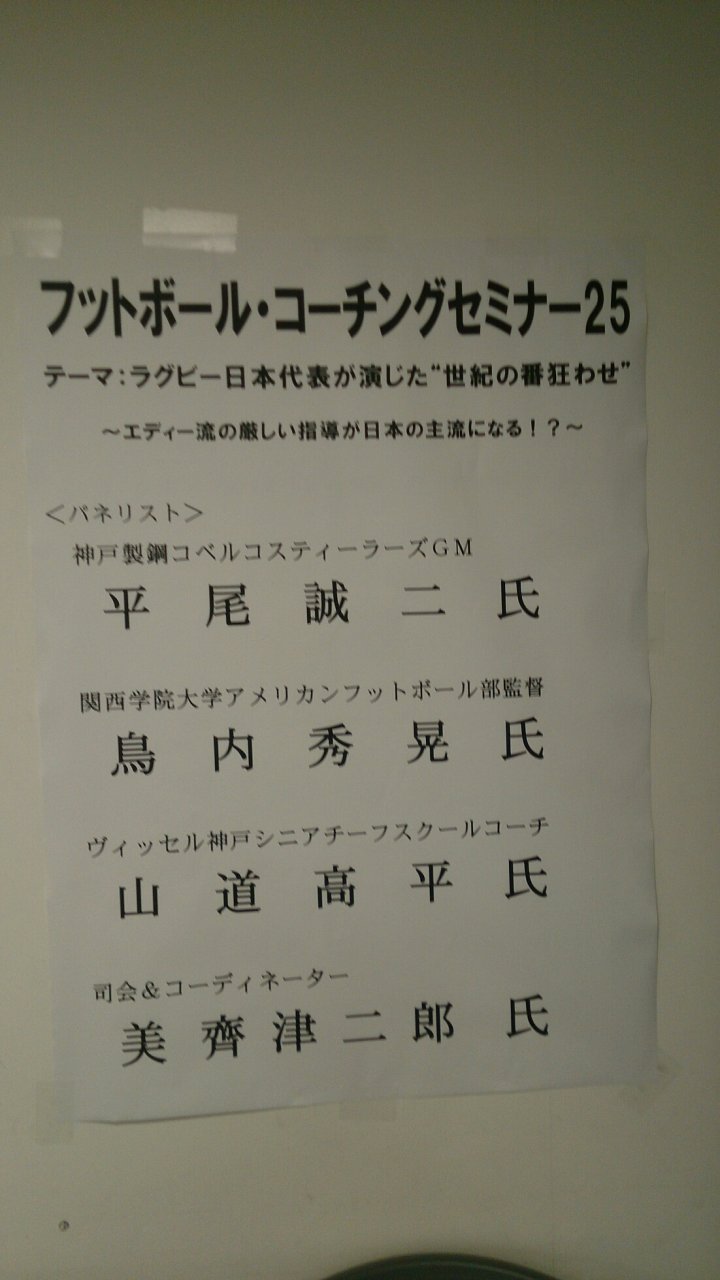 フットボール・コーチングセミナー25
テーマ:ラグビー日本代表が演じた“世紀の番狂わせ”
～エディー流の厳しい指導が日本の主流になる!?～
＜パネリスト＞
神戸製鋼コベルコスティーラーズGM
平尾誠二氏
関西学院大学アメリカンフットボール部監督
鳥内秀晃氏
ヴィッセル神戸シニアチーフスクールコーチ
山道高平氏
司会＆コーディネーター
美齊津二郎氏